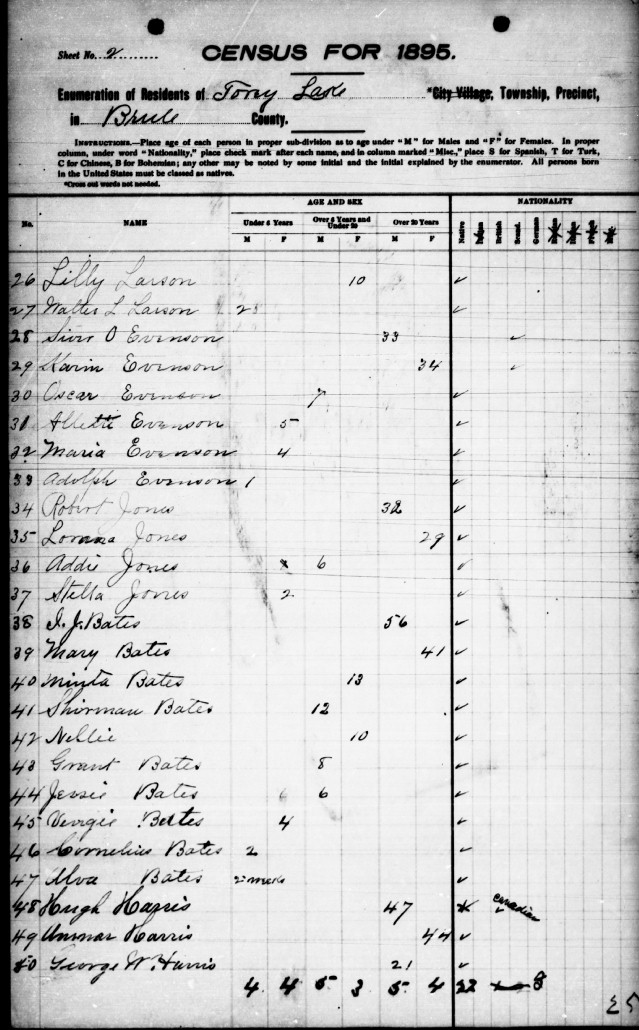 Sheet No. 2
CENSUS FOR 1895.
Enumeration of Residents of Torry Lake *City Village, Township, Precinct,
in Brule County.
INSTRUCTIONS.—Place age of each person in proper sub-division as to age under "M" for Males and "F" for Females. In proper
column, under word "Nationality," place check mark after each name, and in column marked "Misc.," place S for Spanish, T for Turk,
C for Chinese, B for Bohemian; any other may be noted by some initial and the initial explained by the enumerator. All persons born
in the United States must be classed as natives.
*Cross out words not needed.
AGE AND SEX NATIONALITY
No. NAME Under 6 Years Over 6 Years and Under 20 Over 20 Years Native British Scand. German
M F M F M F
26 Lilly Larson 10 ✓
27 Walter L Larson ✓
28 Siver O Evenson 33 ✓
29 Karin Evenson 34 ✓
30 Oscar Evenson 7 ✓
31 Allette Evenson 5 ✓
32 Maria Evenson 4 ✓
33 Adolph Evenson 1 ✓
34 Robert Jones 32 ✓
35 Jones 29 ✓
36 Addie Jones 6 ✓
37 Stella Jones 2 ✓
38 I. J. Bates 56 ✓
39 Mary Bates 41 ✓
40 Minta Bates 13 ✓
41 Shirman Bates 12 ✓
42 Nellie 10 ✓
43 Grant Bates 8 ✓
44 Jessie Bates 6 ✓
45 Vergie Bates 4 ✓
46 Cornelius Bates 2 ✓
47 Alva Bates ✓
48 Hugh Harris 47 Canadian
49 Harris 44 ✓
50 George W. Harris 21 ✓
4 4 5 3 5 4 22
25